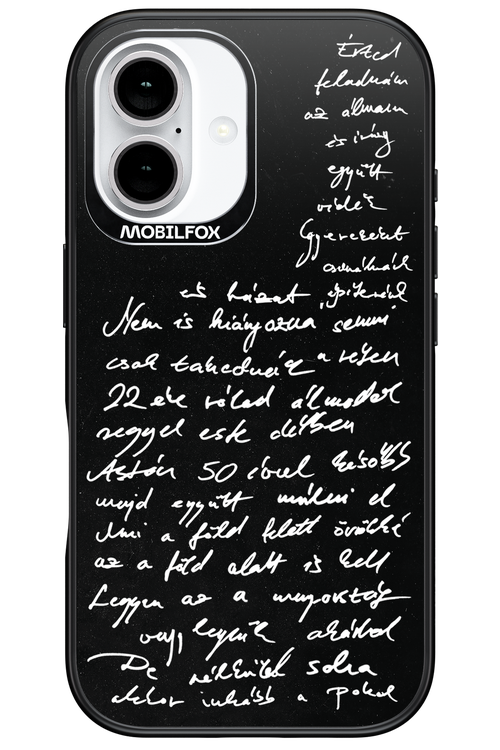 MOBILFOX
Érted
feladnám
az álmom
és irány
együtt
vidék
Gyerekeket
csinálnánk
és házat építenék
Nem is hiányozna semmi
csak takednék a réten
22 éve rólad álmodok
reggel este délben
Aztán 50 évvel később
majd együtt múlni el
Ami a föld felett örökké
az a föld alatt is kell
Legyen az a mennyország
vagy legyünk akárhol
De nélküled soha
akkor inkább a pokol